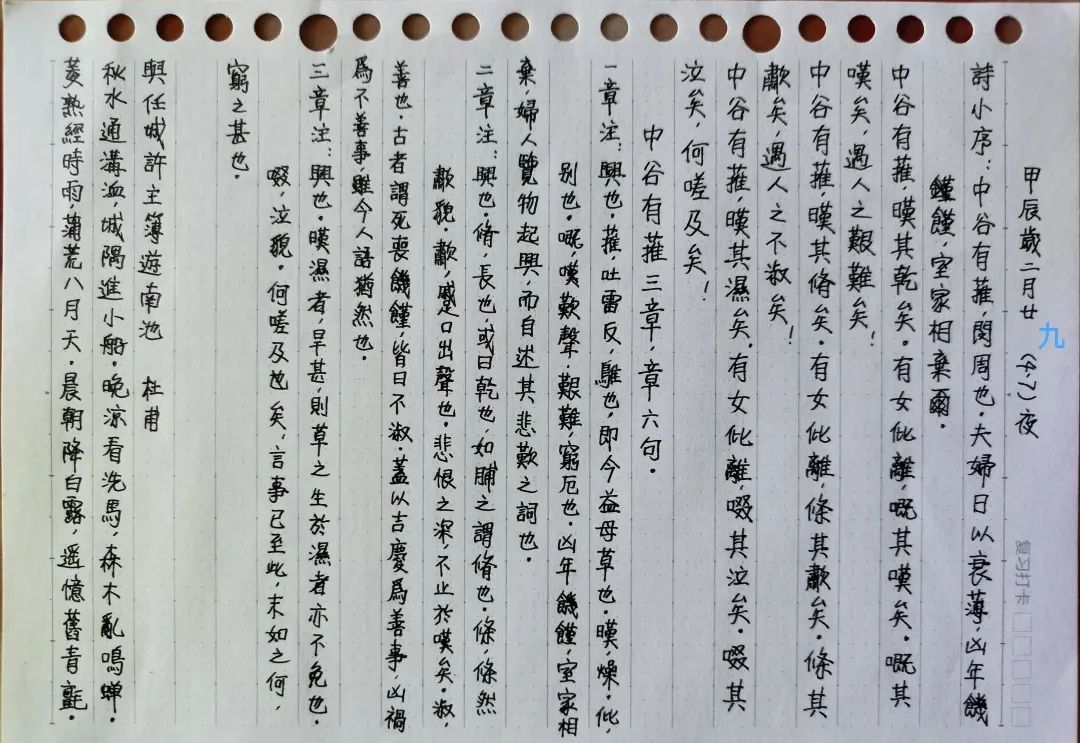 甲辰歲二月廿九（4.7）夜
詩小序：中谷有蓷，閔周也。夫婦日以衰薄，凶年饑
饉，室家相棄爾。
中谷有蓷，暵其乾矣。有女仳離，嘅其嘆矣。嘅其
嘆矣，遇人之艱難矣！
中谷有蓷，暵其脩矣。有女仳離，條其歗矣。條其
歗矣，遇人之不淑矣！
中谷有蓷，暵其濕矣。有女仳離，啜其泣矣。啜其
泣矣，何嗟及矣！
中谷有蓷三章，章六句。
一章注：興也。蓷，吐雷反，鵻也，即今益母草也。暵，燥。仳，
別也。嘅，嘆歎聲。艱難，窮厄也。凶年饑饉，室家相
棄，婦人覽物起興，而自述其悲歎之詞也。
二章注：興也。脩，長也，或曰乾也，如脯之謂脩也。條，條然
歗貌。歗，蹙口出聲也。悲恨之深，不止於嘆矣。淑，
善也。古者謂死喪饑饉皆曰不淑。蓋以吉慶爲善事，凶禍
爲不善事，雖今人語猶然也。
三章注：興也。暵濕者，旱甚，則草之生於濕者亦不免也。
啜，泣貌。何嗟及也矣，言事已至此，末如之何，
窮之甚也。
與任城許主簿遊南池 杜甫
秋水通溝洫，城隅進小船。晚涼看洗馬，森木亂鳴蟬。
菱熟經時雨，蒲荒八月天。晨朝降白露，遥憶舊青氈。
复习打卡